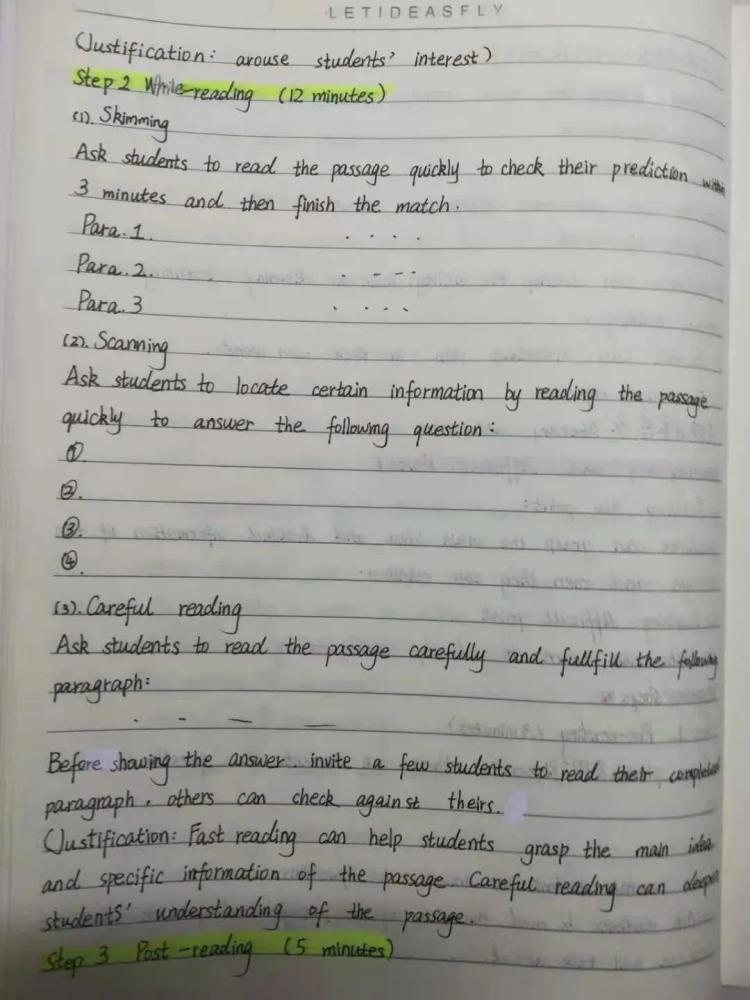 LETIDEASFLY
(Justification: arouse students' interest)
Step 2 While-reading (12 minutes)
(1). Skimming
Ask students to read the passage quickly to check their prediction within
3 minutes and then finish the match.
Para. 1. . . . .
Para. 2. . - - -
Para. 3 . . . .
(2). Scanning
Ask students to locate certain information by reading the passage
quickly to answer the following question:
①
②.
③.
④.
(3). Careful reading
Ask students to read the passage carefully and fullfill the following
paragraph:
Before showing the answer. invite a few students to read their completed
paragraph. others can check against theirs.
(Justification: Fast reading can help students grasp the main idea
and specific information of the passage. Careful reading can deepen
students' understanding of the passage.
Step 3 Post-reading (5 minutes)